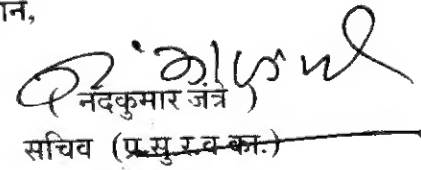 ान,
( नंदकुमार जंत्रे )
सचिव (प्र.सु.र.व.का.)